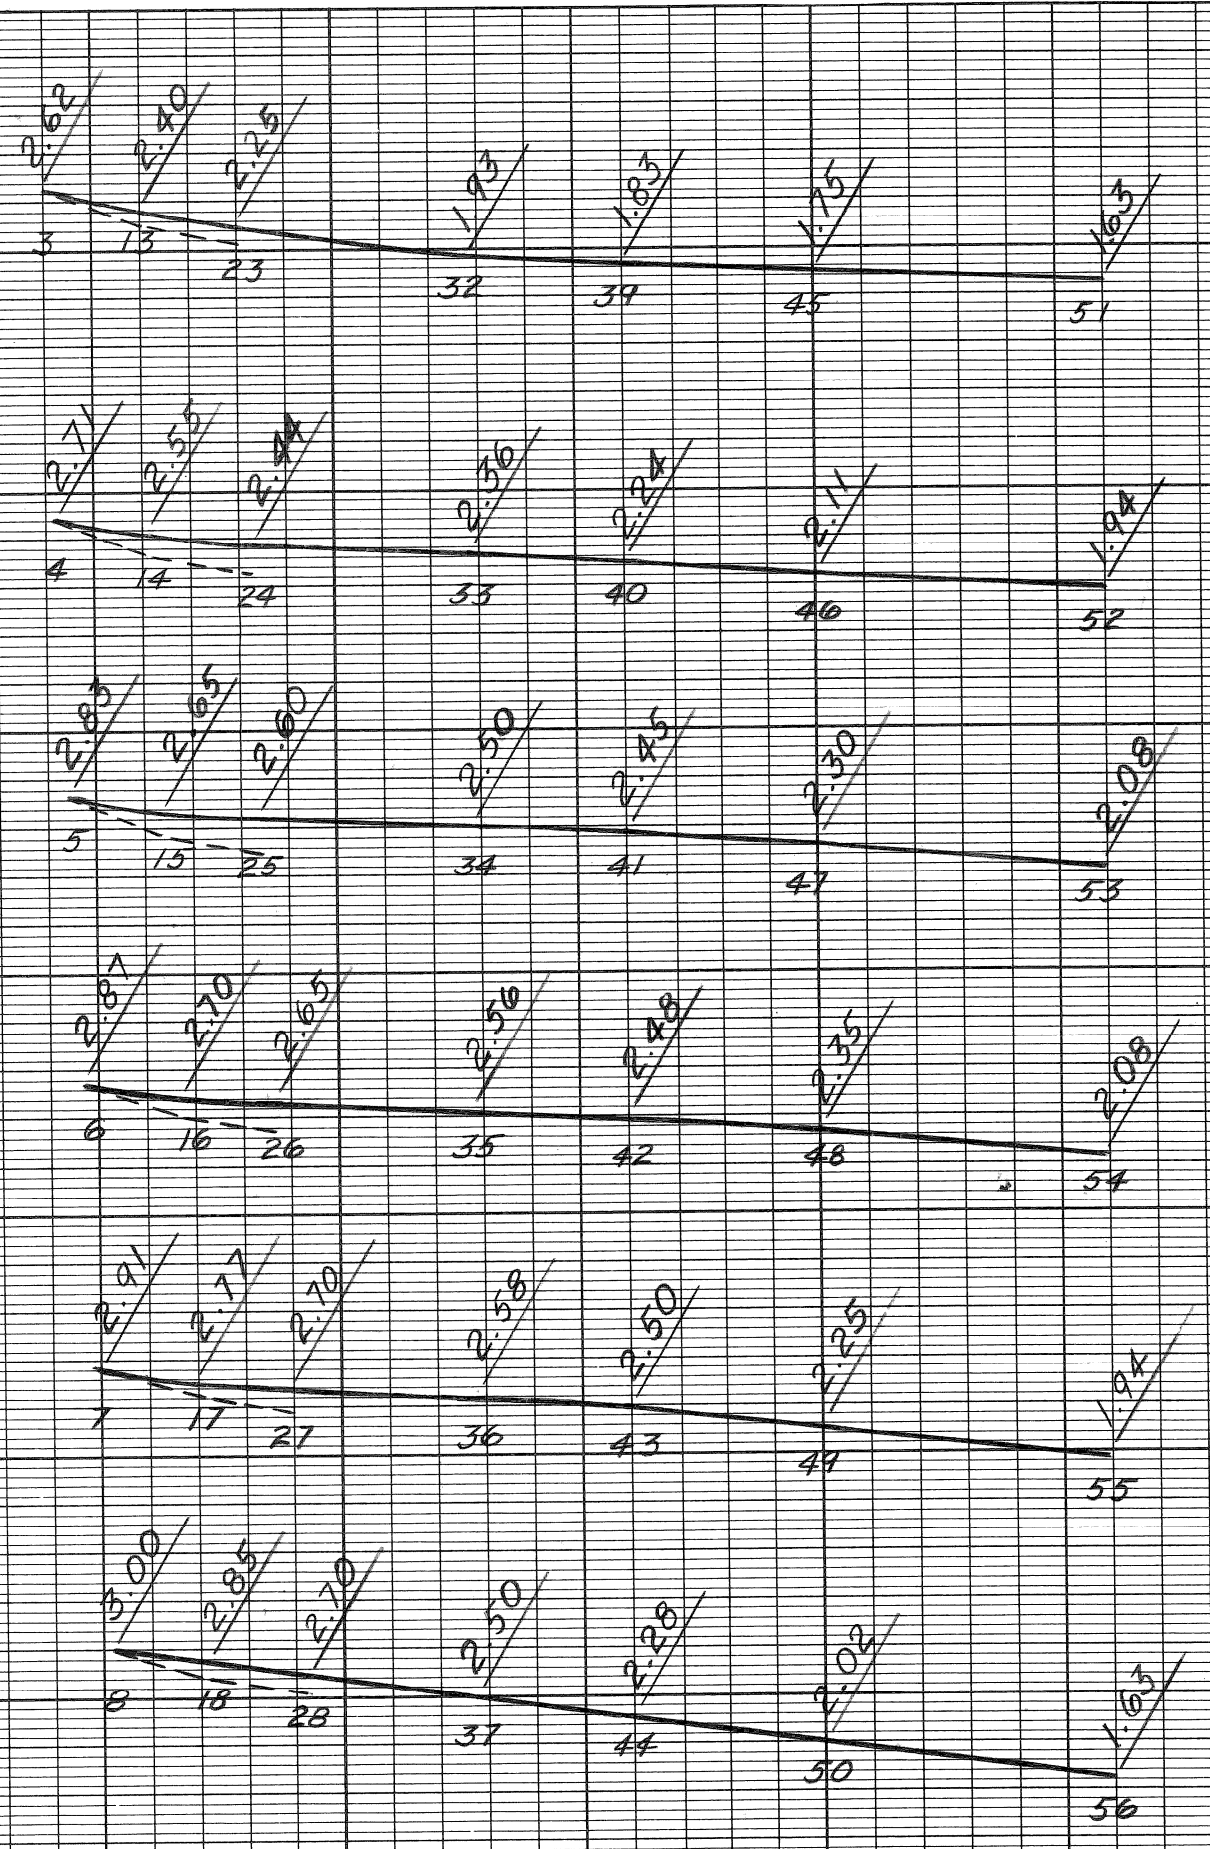 2.62 2.40 2.25 1.93 1.83 1.75 1.63
3 13 23 32 39 45 51
2.71 2.55 2.44 2.36 2.24 2.11 1.94
4 14 24 33 40 46 52
2.83 2.65 2.60 2.50 2.45 2.30 2.08
5 15 25 34 41 47 53
2.87 2.70 2.65 2.56 2.48 2.35 2.08
6 16 26 35 42 48 54
2.91 2.77 2.70 2.58 2.50 2.25 1.94
7 17 27 36 43 49 55
3.00 2.85 2.70 2.50 2.28 2.02 1.63
8 18 28 37 44 50 56